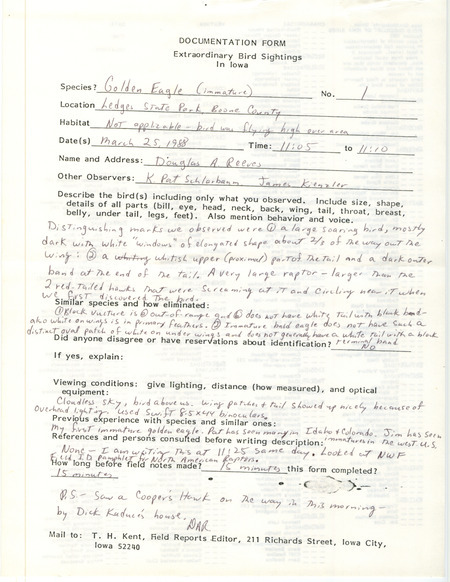 DOCUMENTATION FORM
Extraordinary Bird Sightings
In Iowa
Species? Golden Eagle (immature) No. 1
Location Ledges State Park Boone County
Habitat Not applicable - bird was flying high over area
Date(s) March 25, 1988 Time: 11:05 to 11:10
Name and Address: Douglas A Reeves
Other Observers: K Pat Schlarbaum James Kienzler
Describe the bird(s) including only what you observed. Include size, shape,
details of all parts (bill, eye, head, neck, back, wing, tail, throat, breast,
belly, under tail, legs, feet). Also mention behavior and voice.
Distinguishing marks we observed were ① a large soaring bird, mostly
dark with white "windows" of elongated shape about 2/3 of the way out the
wing; ② a whitish upper (proximal) part of the tail and a dark outer
band at the end of the tail. A very large raptor - larger than the
2 red-tailed hawks that were screaming at it and circling near it when
we first discovered the bird.
Similar species and how eliminated:
① Black Vulture is out of range and does not have white tail with black band -
also white on wings is in primary feathers. ② Immature bald eagle does not have such a
distinct oval patch of white on under wings and does not generally have a white tail with a black
terminal band
Did anyone disagree or have reservations about identification? No
If yes, explain:
Viewing conditions: give lighting, distance (how measured), and optical
equipment:
Cloudless sky, bird above us. Wing patches + tail showed up nicely because of
overhead lighting. Used Swift 8.5x44 binoculars.
Previous experience with species and similar ones:
My first immature golden eagle. Pat has seen many in Idaho + Colorado. Jim has seen
immatures in the west U.S.
References and persons consulted before writing description:
None - I am writing this at 11:25 same day. Looked at NWF
Field I.D. Pamphlet to North American Raptors.
How long before field notes made? 15 minutes this form completed?
15 minutes
P.S. - Saw a Coopers Hawk on the way in this morning -
by Dick Kaduce's house.
DAR
Mail to: T. H. Kent, Field Reports Editor, 211 Richards Street, Iowa City,
Iowa 52240